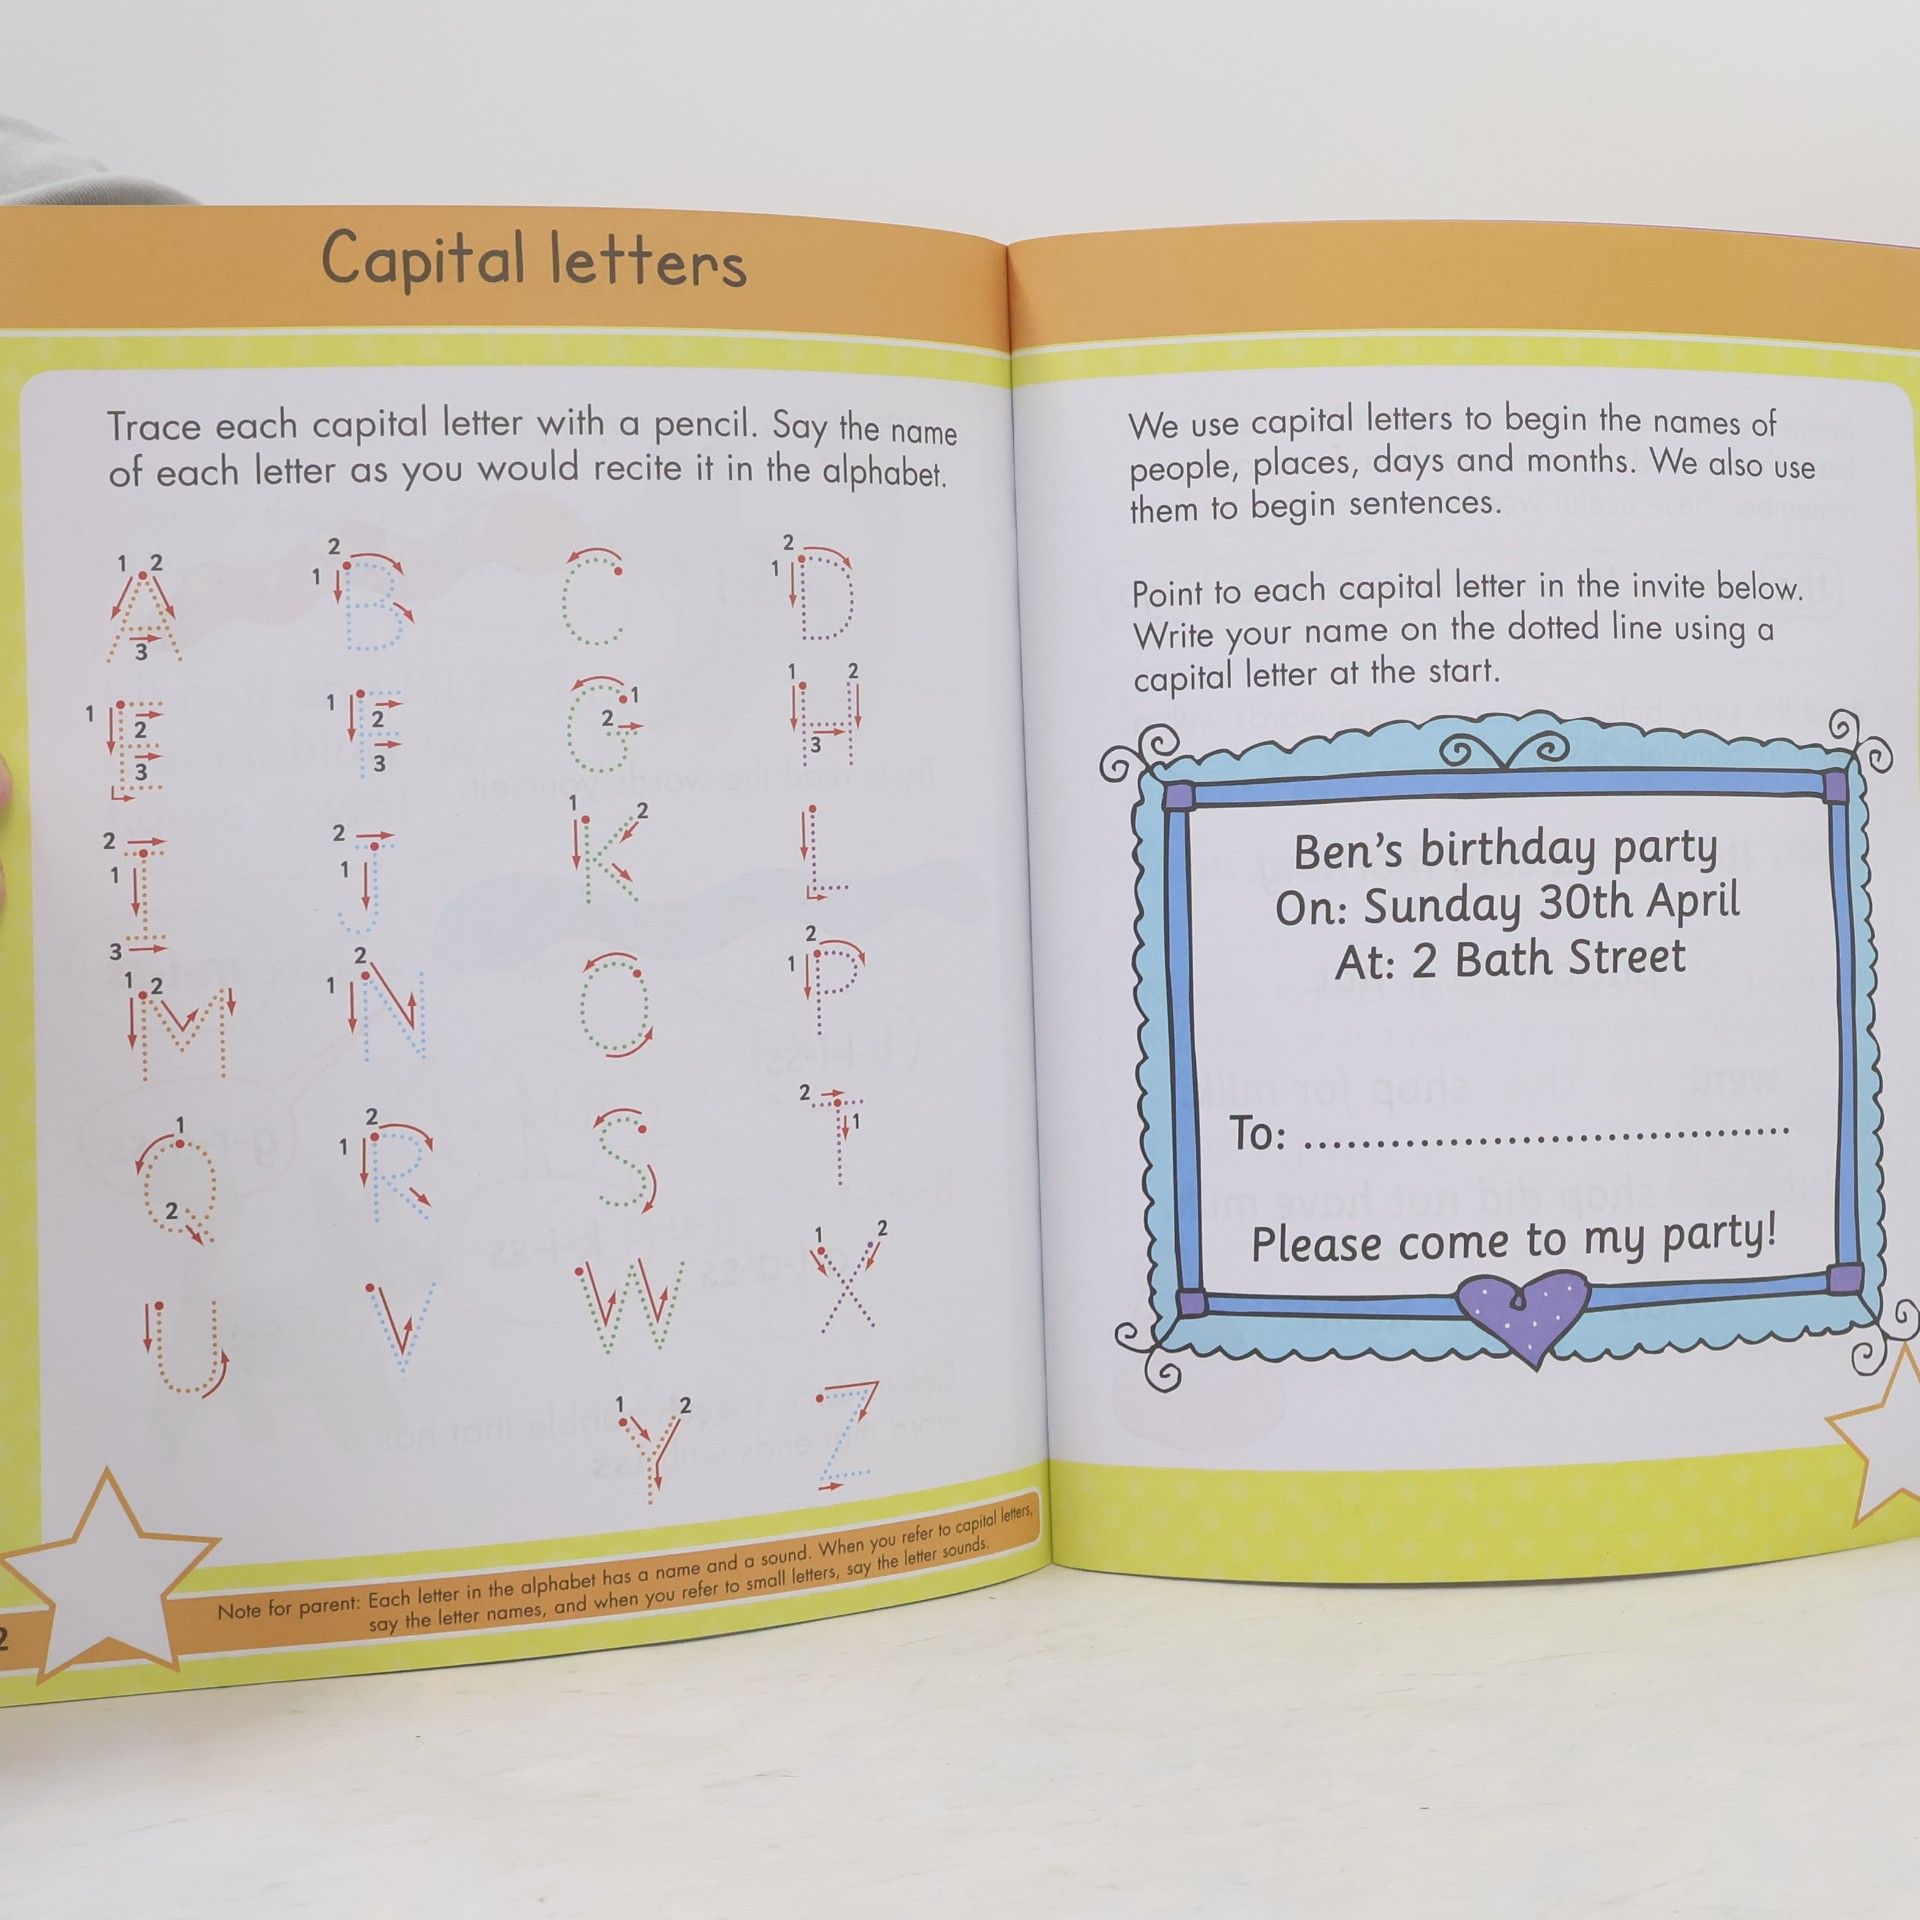 Capital letters
Trace each capital letter with a pencil. Say the name
of each letter as you would recite it in the alphabet.
1 2 3 A
1 2 B
C
1 2 D
1 2 3 E
1 2 3 F
1 2 G
1 2 3 H
1 2 3 I
1 2 J
1 2 K
L
1 2 M
1 2 N
O
1 2 P
1 2 Q
1 2 R
S
1 2 T
U
V
W
1 2 X
1 2 Y
Z
Note for parent: Each letter in the alphabet has a name and a sound. When you refer to capital letters,
say the letter names, and when you refer to small letters, say the letter sounds.
2
We use capital letters to begin the names of
people, places, days and months. We also use
them to begin sentences.
Point to each capital letter in the invite below.
Write your name on the dotted line using a
capital letter at the start.
Ben's birthday party
On: Sunday 30th April
At: 2 Bath Street
To: ..................................
Please come to my party!